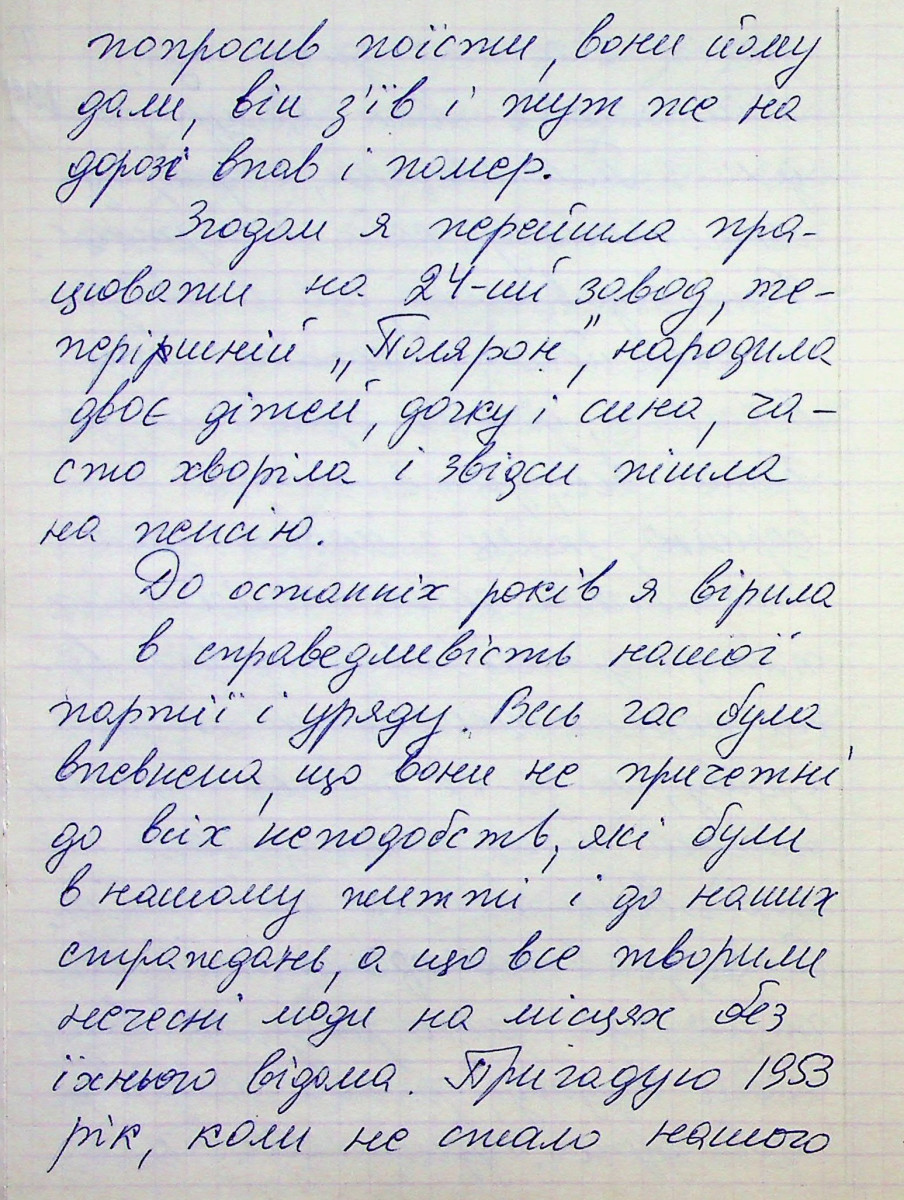 попросив поїсти, вони йому
дали, він з'їв і тут же на
дорозі впав і помер.
Згодом я перейшла пра-
цювати на 24-ий завод, те-
перішній „Полярон", народила
двоє дітей, дочку і сина, ча-
сто хворіла і звідси пішла
на пенсію.
До останніх років я вірила
в справедливість нашої
партії і уряду. Весь час була
впевнена, що вони не причетні
до всіх неподобств, які були
в нашому житті і до наших
страждань, а що все творили
нечесні люди на місцях без
їхнього відома. Пригадую 1953
рік, коли не стало нашого